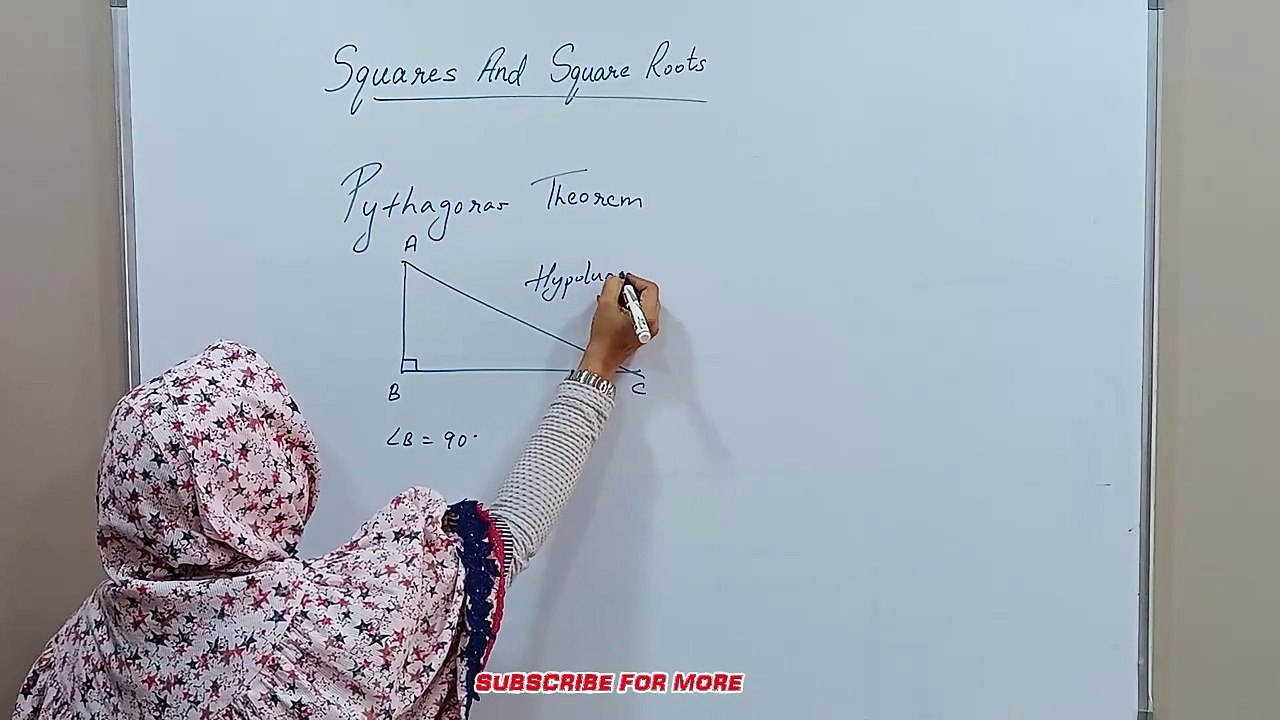 Squares And Square Roots
Pythagoras Theorem
A
B
C
∠B = 90°
SUBSCRIBE FOR MORE